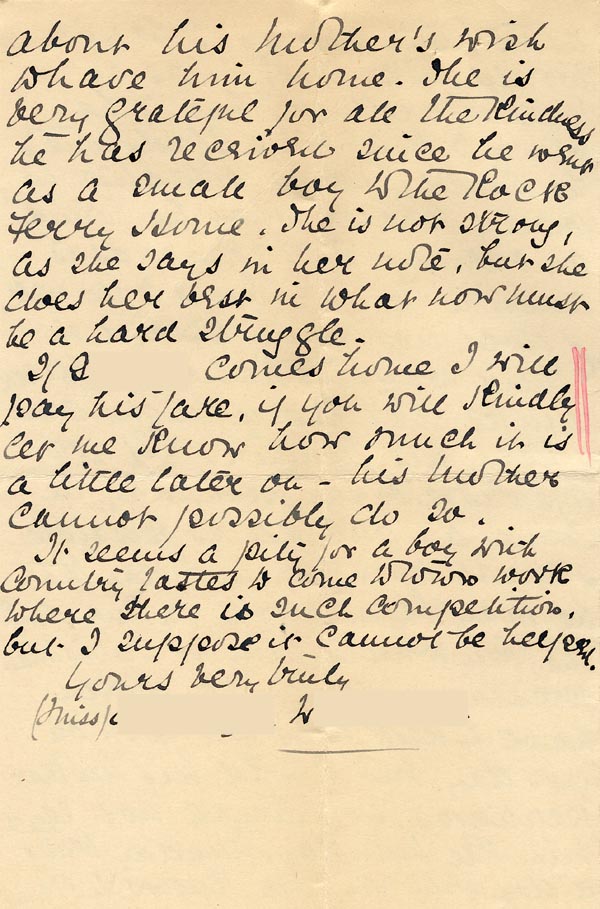 about his Mother's wish
to have him home. She is
very grateful for all the kindness
he has received since he went
as a small boy to the Rock
Ferry Home. She is not strong,
as she says in her note, but she
does her best in what now must
be a hard struggle.
If G comes home I will
pay his fare, if you will kindly
let me know how much it is
a little later on - his Mother
cannot possibly do so.
It seems a pity for a boy with
country tastes to come to town work
where there is such competition,
but I suppose it cannot be helped.
Yours very truly
(Miss)